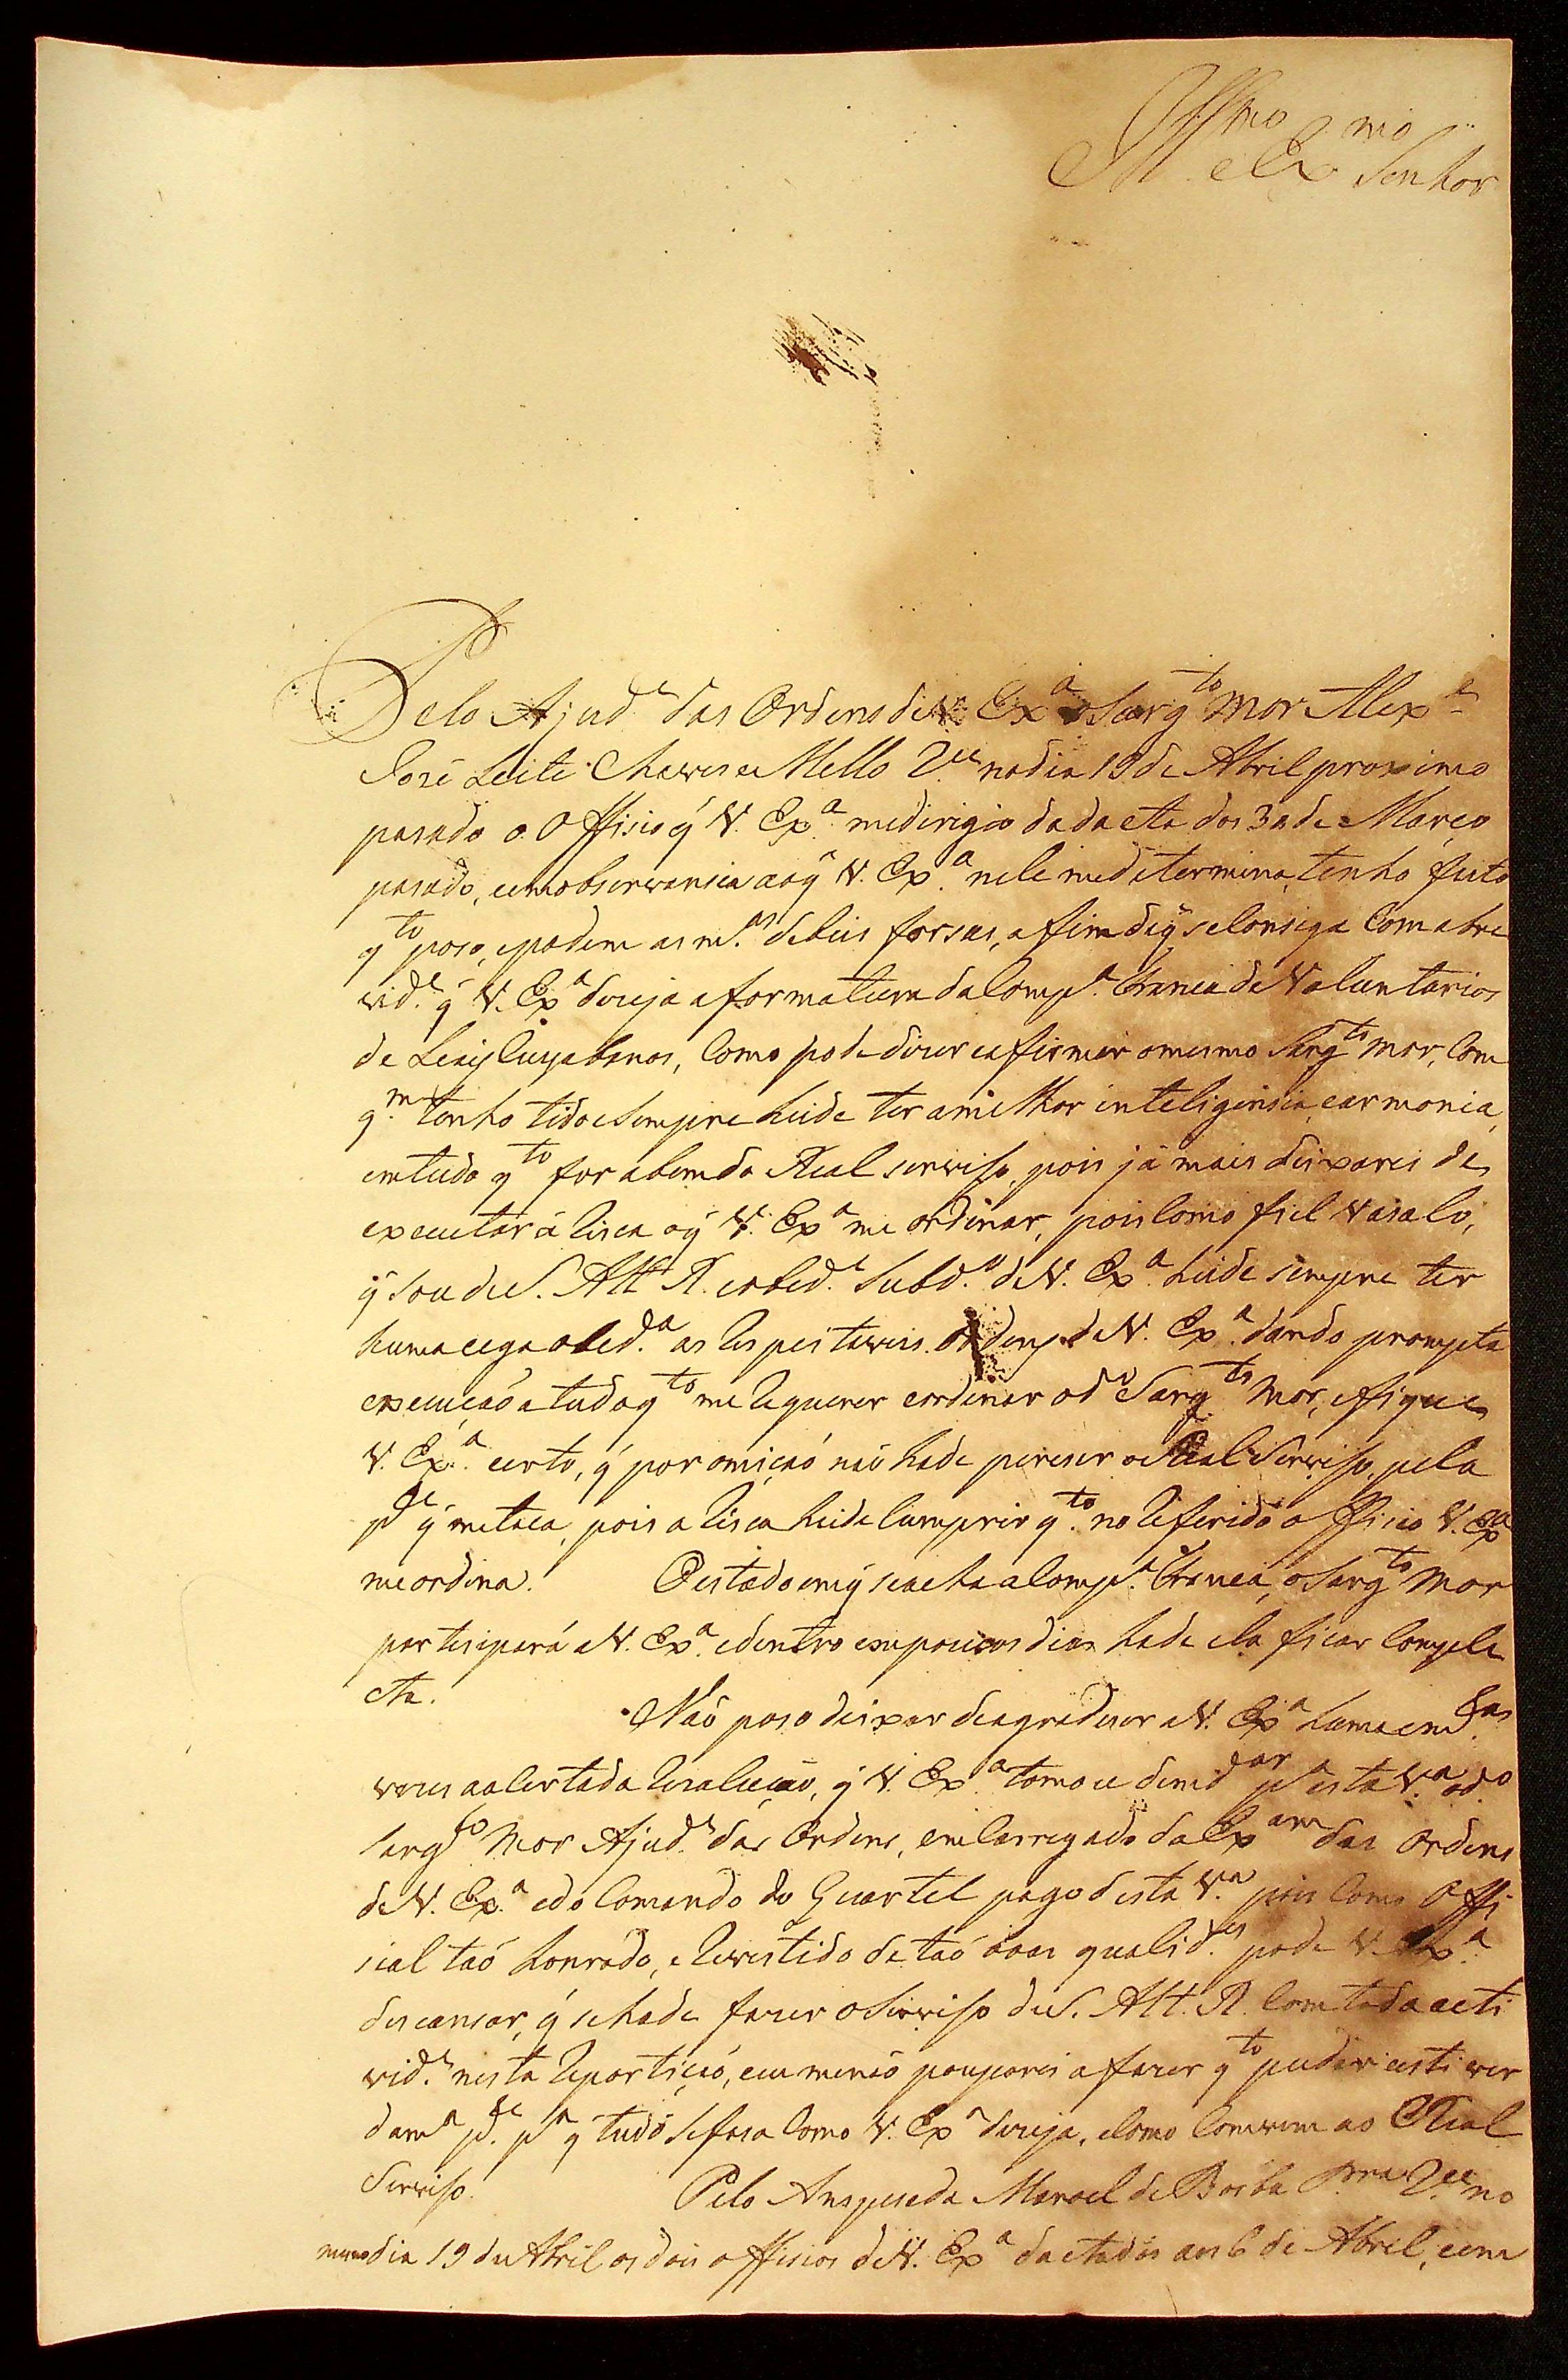 Ill.mo e Ex.mo Senhor
Pelo Ajud.e das Ordens de V. Ex.a o Sarg.to Mor Alex.e
José Leite Chaves e Mello r.ce no dia 19 de Abril proximo
pasado o Offisio q̃ V. Ex.a me dirigio da dacta dos 3 de Março
pasado, e em observansia ao q̃ V. Ex.a nele me determina, tenho feito
q.to poso, e podem as m.as debeis forsas, afim de q̃ se Consiga Com a bre
vid.e q̃ V. Ex.a deseja a formatura da Comp.a Franca de Voluntarios
de Leais Cuyabanos, Como pode dizer e afirmar o mesmo Sarg.to Mor, Com
q.m tenho tido e Sempre heide ter a milhor inteligensia, e armonia,
em tudo q.to for a bem do Real serviso, pois já mais deixarei de
executar á risca o q̃ V. Ex.a me ordenar, pois Como fiel Vasalo,
q̃ sou de S. Alt. R. e obed.e Subd.o de V. Ex.a heide sempre ter
huma cega obed.a as respeitaveis Ordens de V. Ex.a dando prompta
execuçaõ a tudo q.to me requerer e ordenar o d.o Sarg.to Mor, e fique
V. Ex.a certo, q̃ por omiçaõ naõ hade pereser o Real Serviso, pela
p.te q̃ me toca, pois a risca heide Cumprir q.to no referido offisio V. Ex.a
me ordena. O estado em q̃ se acha a Comp.a Franca, o Sarg.to Mor
partisipará a V. Ex.a e dentro em poucos dias hade ela ficar Comple
cta.
Naõ poso deixar de agradeser a V. Ex.a huma e m.tas
vezes a asertada rezoluçaõ, q̃ V. Ex.a tomou de m.dar p.a esta V.a o d.o
Sarg.to Mor Ajud.e das Ordens, emCarregado da Ex.am das Ordens
de V. Ex.a e do Comando do Quartel pago desta V.a pois Como Offi
sial taõ honrado, e revestido de taõ boas qualid.es pode V. Ex.a
descansar, q̃ se hade fazer o Serviso de S. Alt. R. Com toda acti
vid.e nesta repartiçaõ, e eu me naõ pouparei a fazer q.to puder e estiver
da m.a p.te p.a q̃ tudo se fasa Como V. Ex.a deseja, e Como Convem ao Real
Serviso. Pelo Anspesada Manoel de Borba r.ce no
mesmo dia 19 de Abril os dois offisios de V. Ex.a dactados aos 6 de Abril, e em